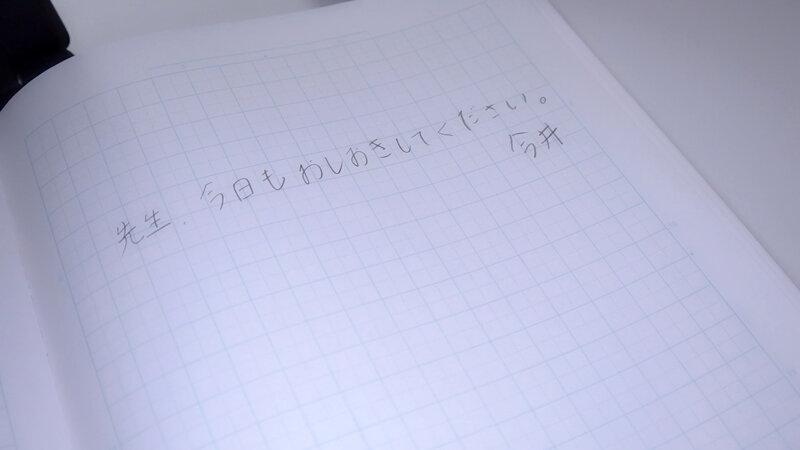 先生、今日もおしおきしてください。
今井